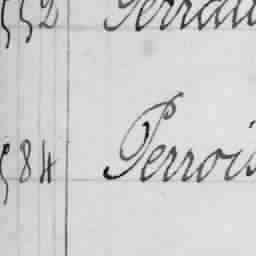 552 Perrau
584 Perrois